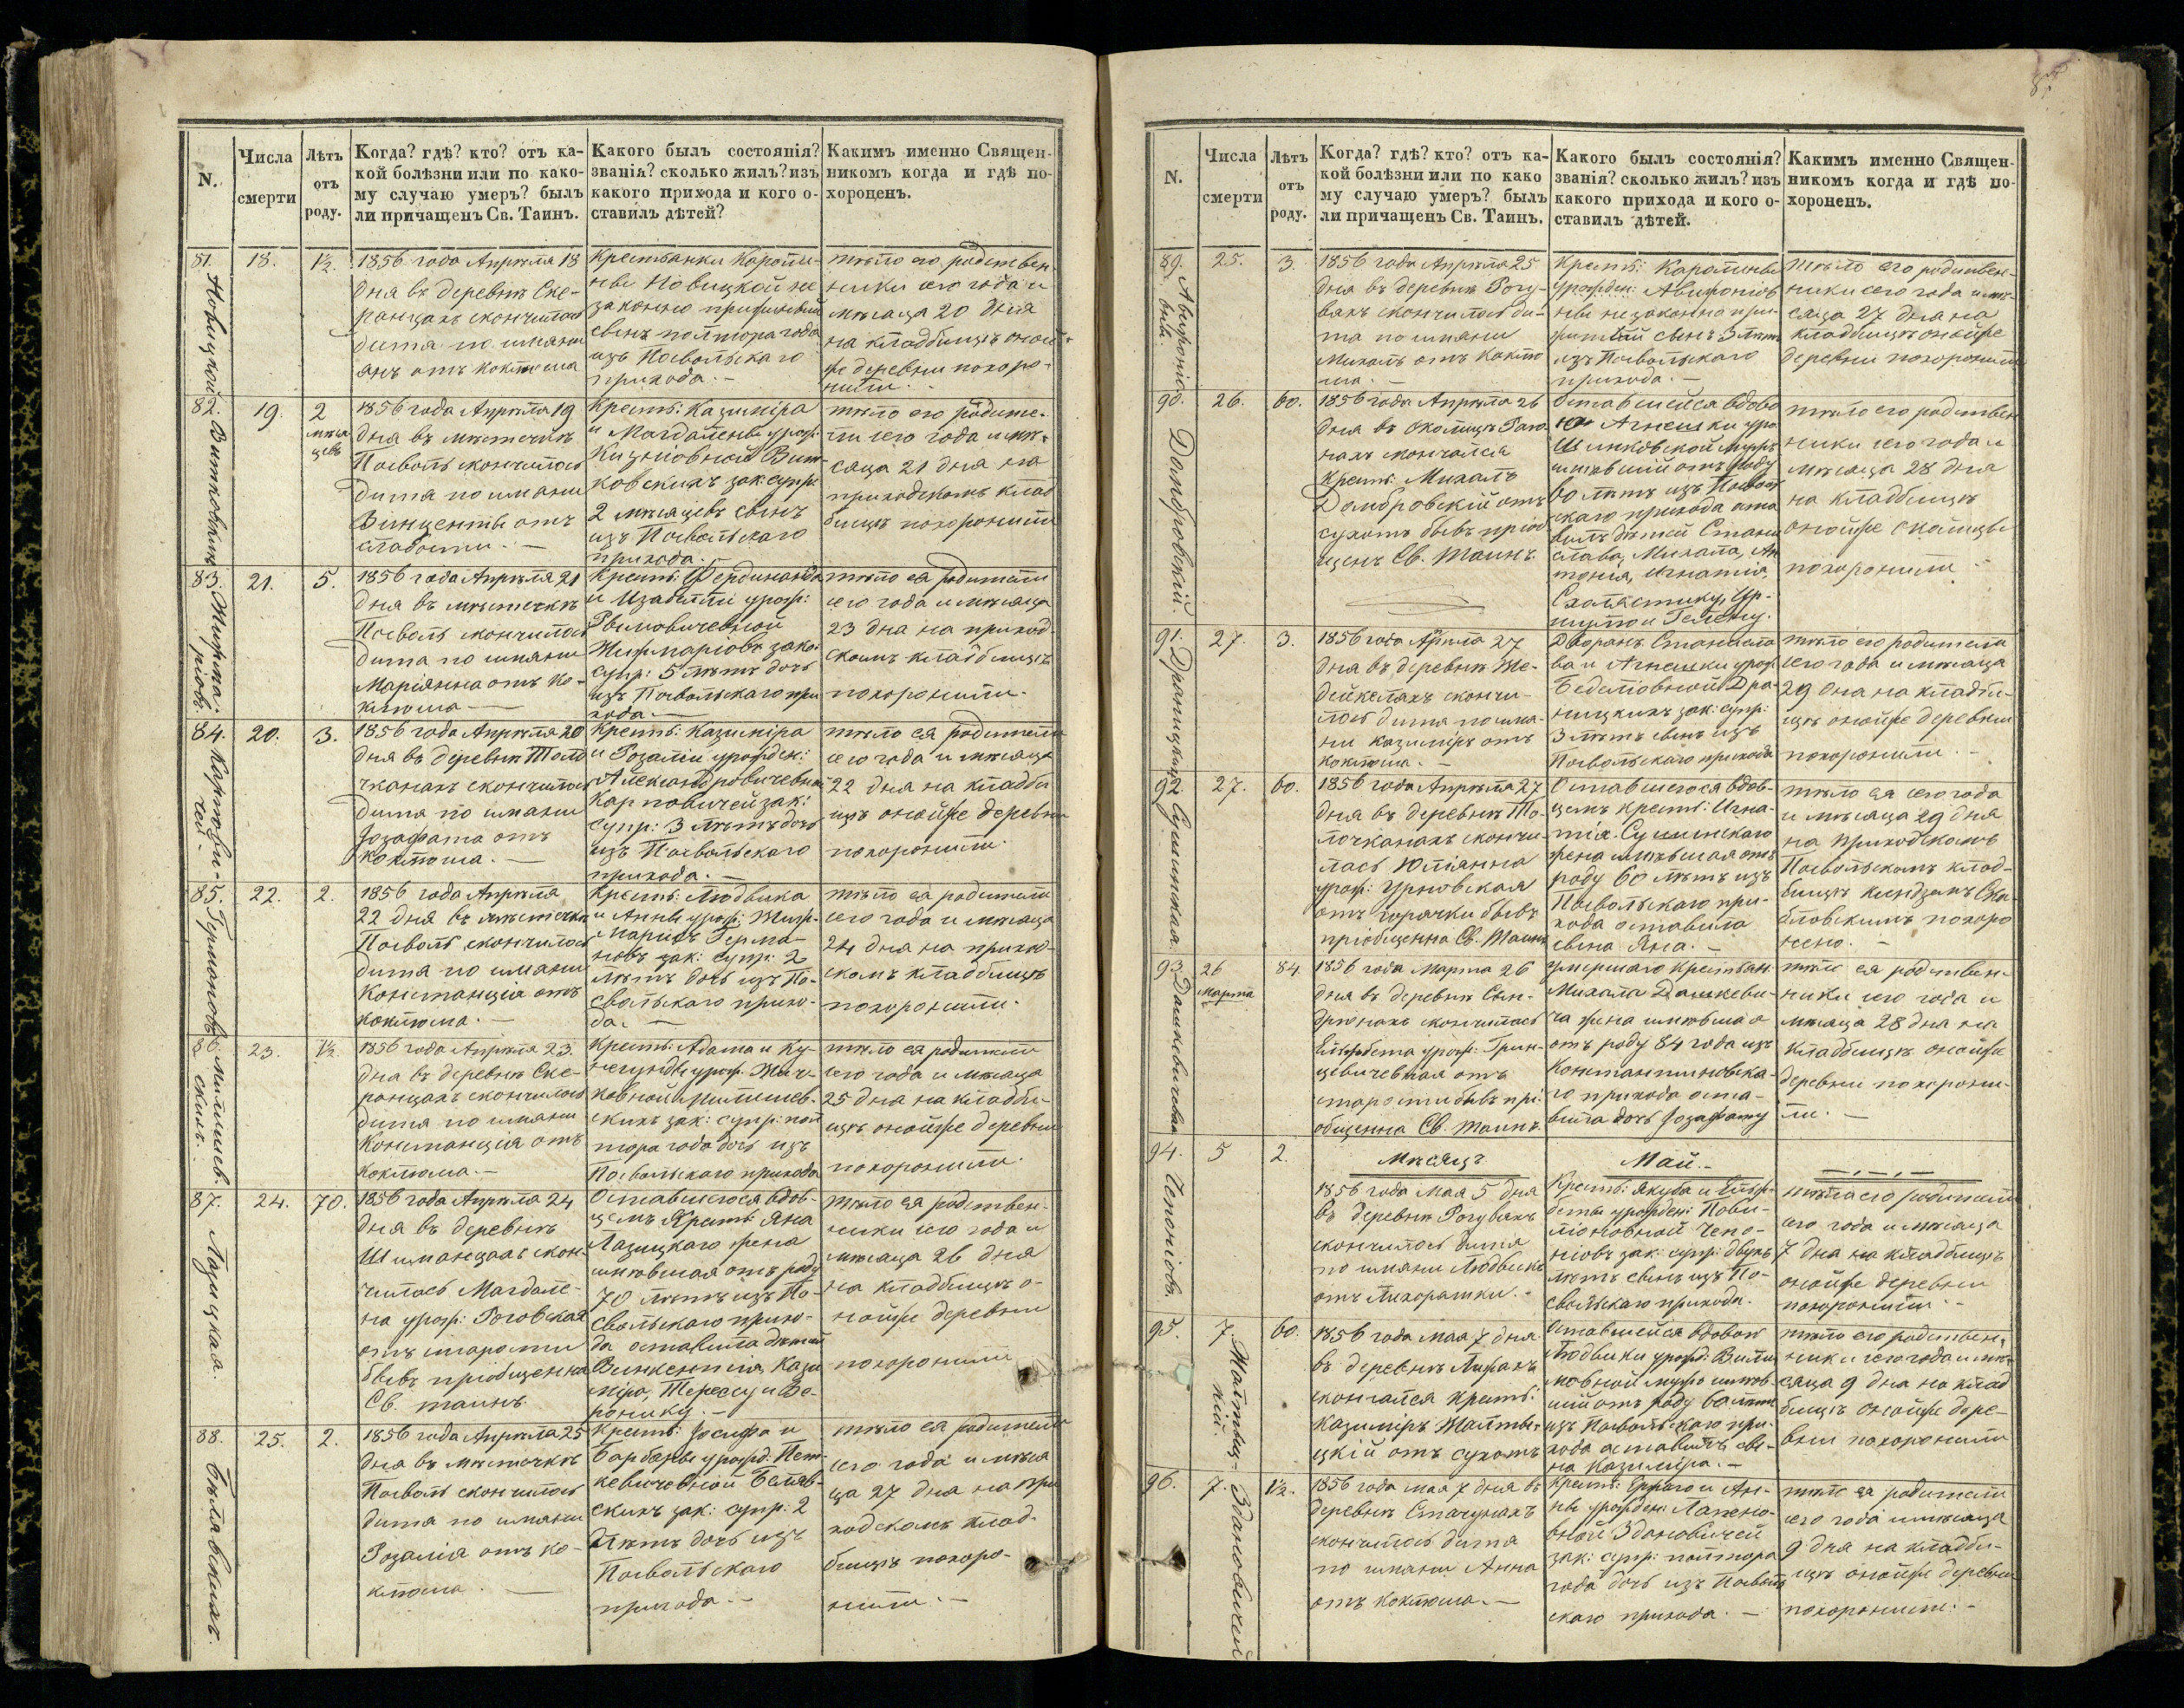 N.
Числа
смерти
Лѣтъ
отъ
роду.
Когда? гдѣ? кто? отъ ка-
кой болѣзни или по како-
му случаю умеръ? былъ
ли причащенъ Св. Таинъ.
Какого былъ состоянія?
званія? сколько жилъ? изъ
какого прихода и кого о-
ставилъ дѣтей?
Какимъ именно Священ-
никомъ когда и гдѣ по-
хороненъ.
81.
Новицкой
18.
1½.
1856 года Апрѣля 18
дня въ деревнѣ Ске-
ранцахъ скончилось
дитя по имяни
янъ отъ коклюша
Крестьянки Кароли-
ны Новицкой не
законно прижитый
сынъ полтора года
изъ Посвольскаго
прихода. —
тѣло его родствен-
ники сего года и
мѣсяца 20 дня
на кладбищѣ оной-
же деревни похоро-
нили.
82.
Витковскихъ
19.
2
мѣся
цевъ
1856 года Апрѣля 19
дня въ мѣстечкѣ
Посволь скончилось
дитя по имяни
Винцентъ отъ
слабости. —
Крест: Казиміра
и Магдалены урож:
Витк-
овскихъ зак: супр:
2 мѣсяцевъ сынъ
изъ Посвольскаго
прихода. —
тѣло его родите-
ли сего года и мѣ-
сяца 21 дня на
приходскомъ клад
бищѣ похоронили
83.
21.
5.
1856 года Апрѣля 21
дня въ мѣстечкѣ
Посволь скончилось
дитя по имяни
Маріянна отъ ко-
клюша —
Крест: Фердинанда
и Изабелли урож:
зако:
супр: 5 лѣтъ дочь
изъ Посвольскаго при
хода. —
тѣло ея родители
сего года и мѣсяца
23 дня на приход-
скомъ кладбищѣ
похоронили.
84.
Карпови-
чей.
20.
3.
1856 года Апрѣля 20
дня въ деревнѣ Толо
чканахъ скончилось
дитя по имяни
Іозафата отъ
коклюша. —
Крест: Казиміра
и Розаліи урожден:
Александровичевной
Карповичей зак:
супр: 3 лѣтъ дочь
изъ Посвольскаго
прихода. —
тѣло ея родители
сего года и мѣсяца
22 дня на кладби
щѣ онойже деревни
похоронили.
85.
Германовъ
22.
2.
1856 года Апрѣля
22 дня въ мѣстечкѣ
Посволь скончилось
дитя по имяни
Констанція отъ
коклюша. —
Крест: Людвика
и Анны урож:
Герма-
новъ зак: супр: 2
лѣтъ дочь изъ По-
свольскаго прихо-
да. —
тѣло ея родители
сего года и мѣсяца
24 дня на приход-
скомъ кладбищѣ
похоронили.
86.
23.
1½.
1856 года Апрѣля 23.
дня въ деревнѣ Ске-
ранцахъ скончилось
дитя по имяни
Констанція отъ
коклюша. —
Крест: Адама и Ку-
негунды урож:
скихъ зак: супр: пол
тора года дочь изъ
Посвольскаго прихода
тѣло ея родители
сего года и мѣсяца
25 дня на кладби-
щѣ онойже деревни
похоронили.
87.
Лазицкая.
24.
70.
1856 года Апрѣля 24
дня въ деревнѣ
Шиманцахъ скон-
чилось Магдале-
на урож: Роговская
отъ старости
бывъ пріобщенна
Св. таинъ.
Оставшегося вдов-
цемъ Крест: Яна
Лазицкаго жена
имѣвшая отъ роду
70 лѣтъ изъ По-
свольскаго прихо-
да оставила дѣтей
Винкентія, Кази
міра, Терессу и Ве-
ронику. —
тѣло ея родствен-
ники сего года и
мѣсяца 26 дня
на кладбищѣ о-
нойже деревни
похоронили
88.
Бѣлявскихъ.
25.
2.
1856 года Апрѣля 25
дня въ мѣстечкѣ
Посволь скончилось
дитя по имяни
Розалія отъ ко-
клюша. —
Крест: Іосифа и
Барбары урожд: Пет-
кевичевной Беляв-
скихъ зак: супр: 2
лѣтъ дочь изъ
Посвольскаго
прихода. —
тѣло ея родители
сего года и мѣся
ца 27 дня на при
ходскомъ клад-
бищѣ похоро-
нили. —
N.
Числа
смерти
Лѣтъ
отъ
роду.
Когда? гдѣ? кто? отъ ка-
кой болѣзни или по како
му случаю умеръ? былъ
ли причащенъ Св. Таинъ.
Какого былъ состоянія?
званія? сколько жилъ? изъ
какого прихода и кого о-
ставилъ дѣтей.
Какимъ именно Священ-
никомъ когда и гдѣ по-
хороненъ.
89.
25.
3.
1856 года Апрѣля 25
дня въ деревнѣ Рогу-
вахъ скончилось ди-
тя по имяни
Михалъ отъ коклю
ша. —
Крест: Каролины
урожден:
незаконно при-
житый сынъ 3 лѣтъ
изъ Посвольскаго
прихода. —
тѣло его родствен-
ники сего года и мѣ-
сяца 27 дня на
кладбищѣ онойже
деревни похоронили
90.
Домбровскій.
26.
60.
1856 года Апрѣля 26
дня въ околицѣ
скончался
Крест: Михалъ
Домбровскій отъ
сухотъ бывъ пріоб
щенъ Св. Таинъ.
Оставшейся вдово
ю Агнешки уро
мужъ
имѣвшій отъ роду
60 лѣтъ изъ Посволь
скаго прихода оста
вилъ дѣтей Стани
слава, Михала, Ан
тонія, Игнатія,
Схоластику, Ур-
шулю и Гелену.
тѣло его родствен
ники сего года и
мѣсяца 28 дня
на кладбищѣ
онойже околицы
похоронили —
91.
27.
3.
1856 года Апрѣля 27
дня въ деревнѣ Же-
дейкелахъ скончи-
лось дитя по имя-
ни Казиміръ отъ
коклюша. —
Дворянъ Станисла
ва и Агнешки урож:
Дра-
ницкихъ зак: супр:
3 лѣтъ сынъ изъ
Посвольскаго прихода
тѣло его родители
сего года и мѣсяца
29 дня на кладби-
щѣ онойже деревни
похоронили. —
92.
27.
60.
1856 года Апрѣля 27
дня въ деревнѣ То-
лочканахъ скончи-
лась Юліанна
урож: Урновская
отъ горячки бывъ
пріобщенна Св. Таинъ
Оставшегося вдов-
цемъ Крест: Игна-
тія
жена имѣвшая отъ
роду 60 лѣтъ изъ
Посвольскаго при-
хода оставила
сына Яна. —
тѣло ея сего года
и мѣсяца 29 дня
на приходскомъ
Посвольскомъ клад-
бищѣ
похоро
нено. —
93.
Дашкевичевая
26
Марта
84.
1856 года Марта 26
дня въ деревнѣ
скончилась
Елізабета урож: Грин-
цевичевная отъ
старости бывъ прі-
общенна Св. таинъ.
умершаго Крестьян:
Михала Дашкеви-
ча жена имѣвшая
отъ роду 84 года изъ
Константиновска-
го прихода оста-
вила дочь Іозафату
тѣло ея родствен-
ники сего года и
мѣсяца 28 дня на
кладбищѣ онойже
деревни похорони-
ли. —
94.
Чепоніовъ.
5
2.
Мѣсяцъ
Май. —
1856 года Мая 5 дня
въ деревнѣ Рогувахъ
скончилось дитя
по имяни Людвикъ
отъ Лихорадки. —
Крест: Якуба и Елиз-
беты урожден: Пови-
ліоновной Чепо-
ніовъ зак: супр: двухъ
лѣтъ сынъ изъ По-
свольскаго прихода.
тѣло его родители
сего года и мѣсяца
7 дня на кладбищѣ
онойже деревни
похоронили. —
95.
7.
60.
1856 года Мая 7 дня
въ деревнѣ
скончался Крест:
Казиміръ
отъ сухотъ
Оставшейся вдовою
Людвики урожд:
имѣв-
шій отъ роду 60 лѣтъ
изъ Посвольскаго при-
хода оставилъ сы-
на Казиміра. —
тѣло его родствен-
ники сего года и мѣ-
сяца 9 дня на клад
бищѣ онойже дере-
вни похоронили
96.
Здановичей
7.
1½.
1856 года мая 7 дня въ
деревнѣ Стачунахъ
скончилось дитя
по имяни Анна
отъ коклюша. —
Крест: и Ан-
ны урожден:
Здановичей
зак: супр: полтора
года дочь изъ Посволь
скаго прихода. —
тѣло ея родители
сего года и мѣсяца
9 дня на кладби-
щѣ онойже деревни
похоронили. —